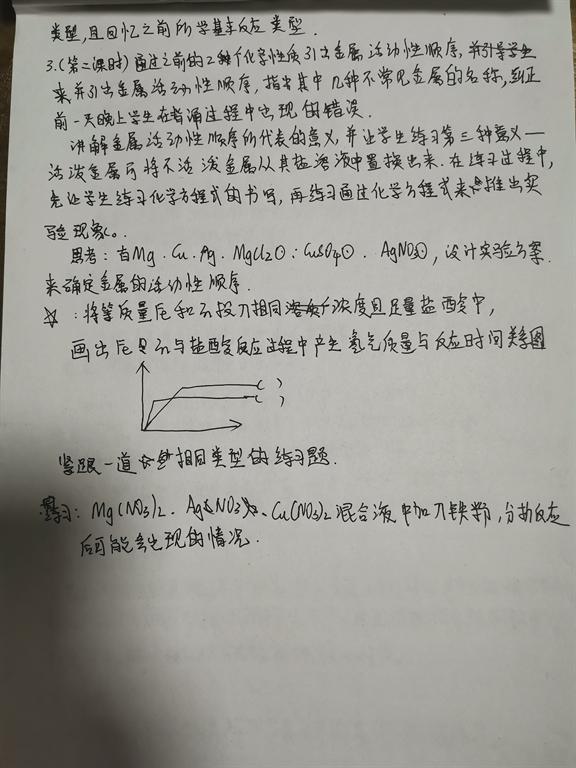 类型,且回忆之前所学基本反应类型.
3.(第二课时)通过之前的2种化学性质引出金属活动性顺序,并引导学生
来并引出金属活动性顺序,指出其中几种不常见金属的名称,纠正
前一天晚上学生在背诵过程中出现的错误.
讲解金属活动性顺序所代表的意义,并让学生练习第三种意义—
活泼金属可将不活泼金属从其盐溶液中置换出来.在练习过程中,
先让学生练习化学方程式的书写,再练习通过化学方程式来推出实
验现象.
思考:有Mg.Cu.Ag.MgCl2.CuSO4.AgNO3,设计实验方案.
来确定金属的活动性顺序.
☆:将等质量Fe和Zn投入相同浓度且足量盐酸中,
画出Fe Zn与盐酸反应过程中产生氢气质量与反应时间关系图
( )
( )
紧跟一道相同类型的练习题.
练习:Mg(NO3)2.AgNO3.Cu(NO3)2混合液中加入铁粉,分析反应
后可能会出现的情况.